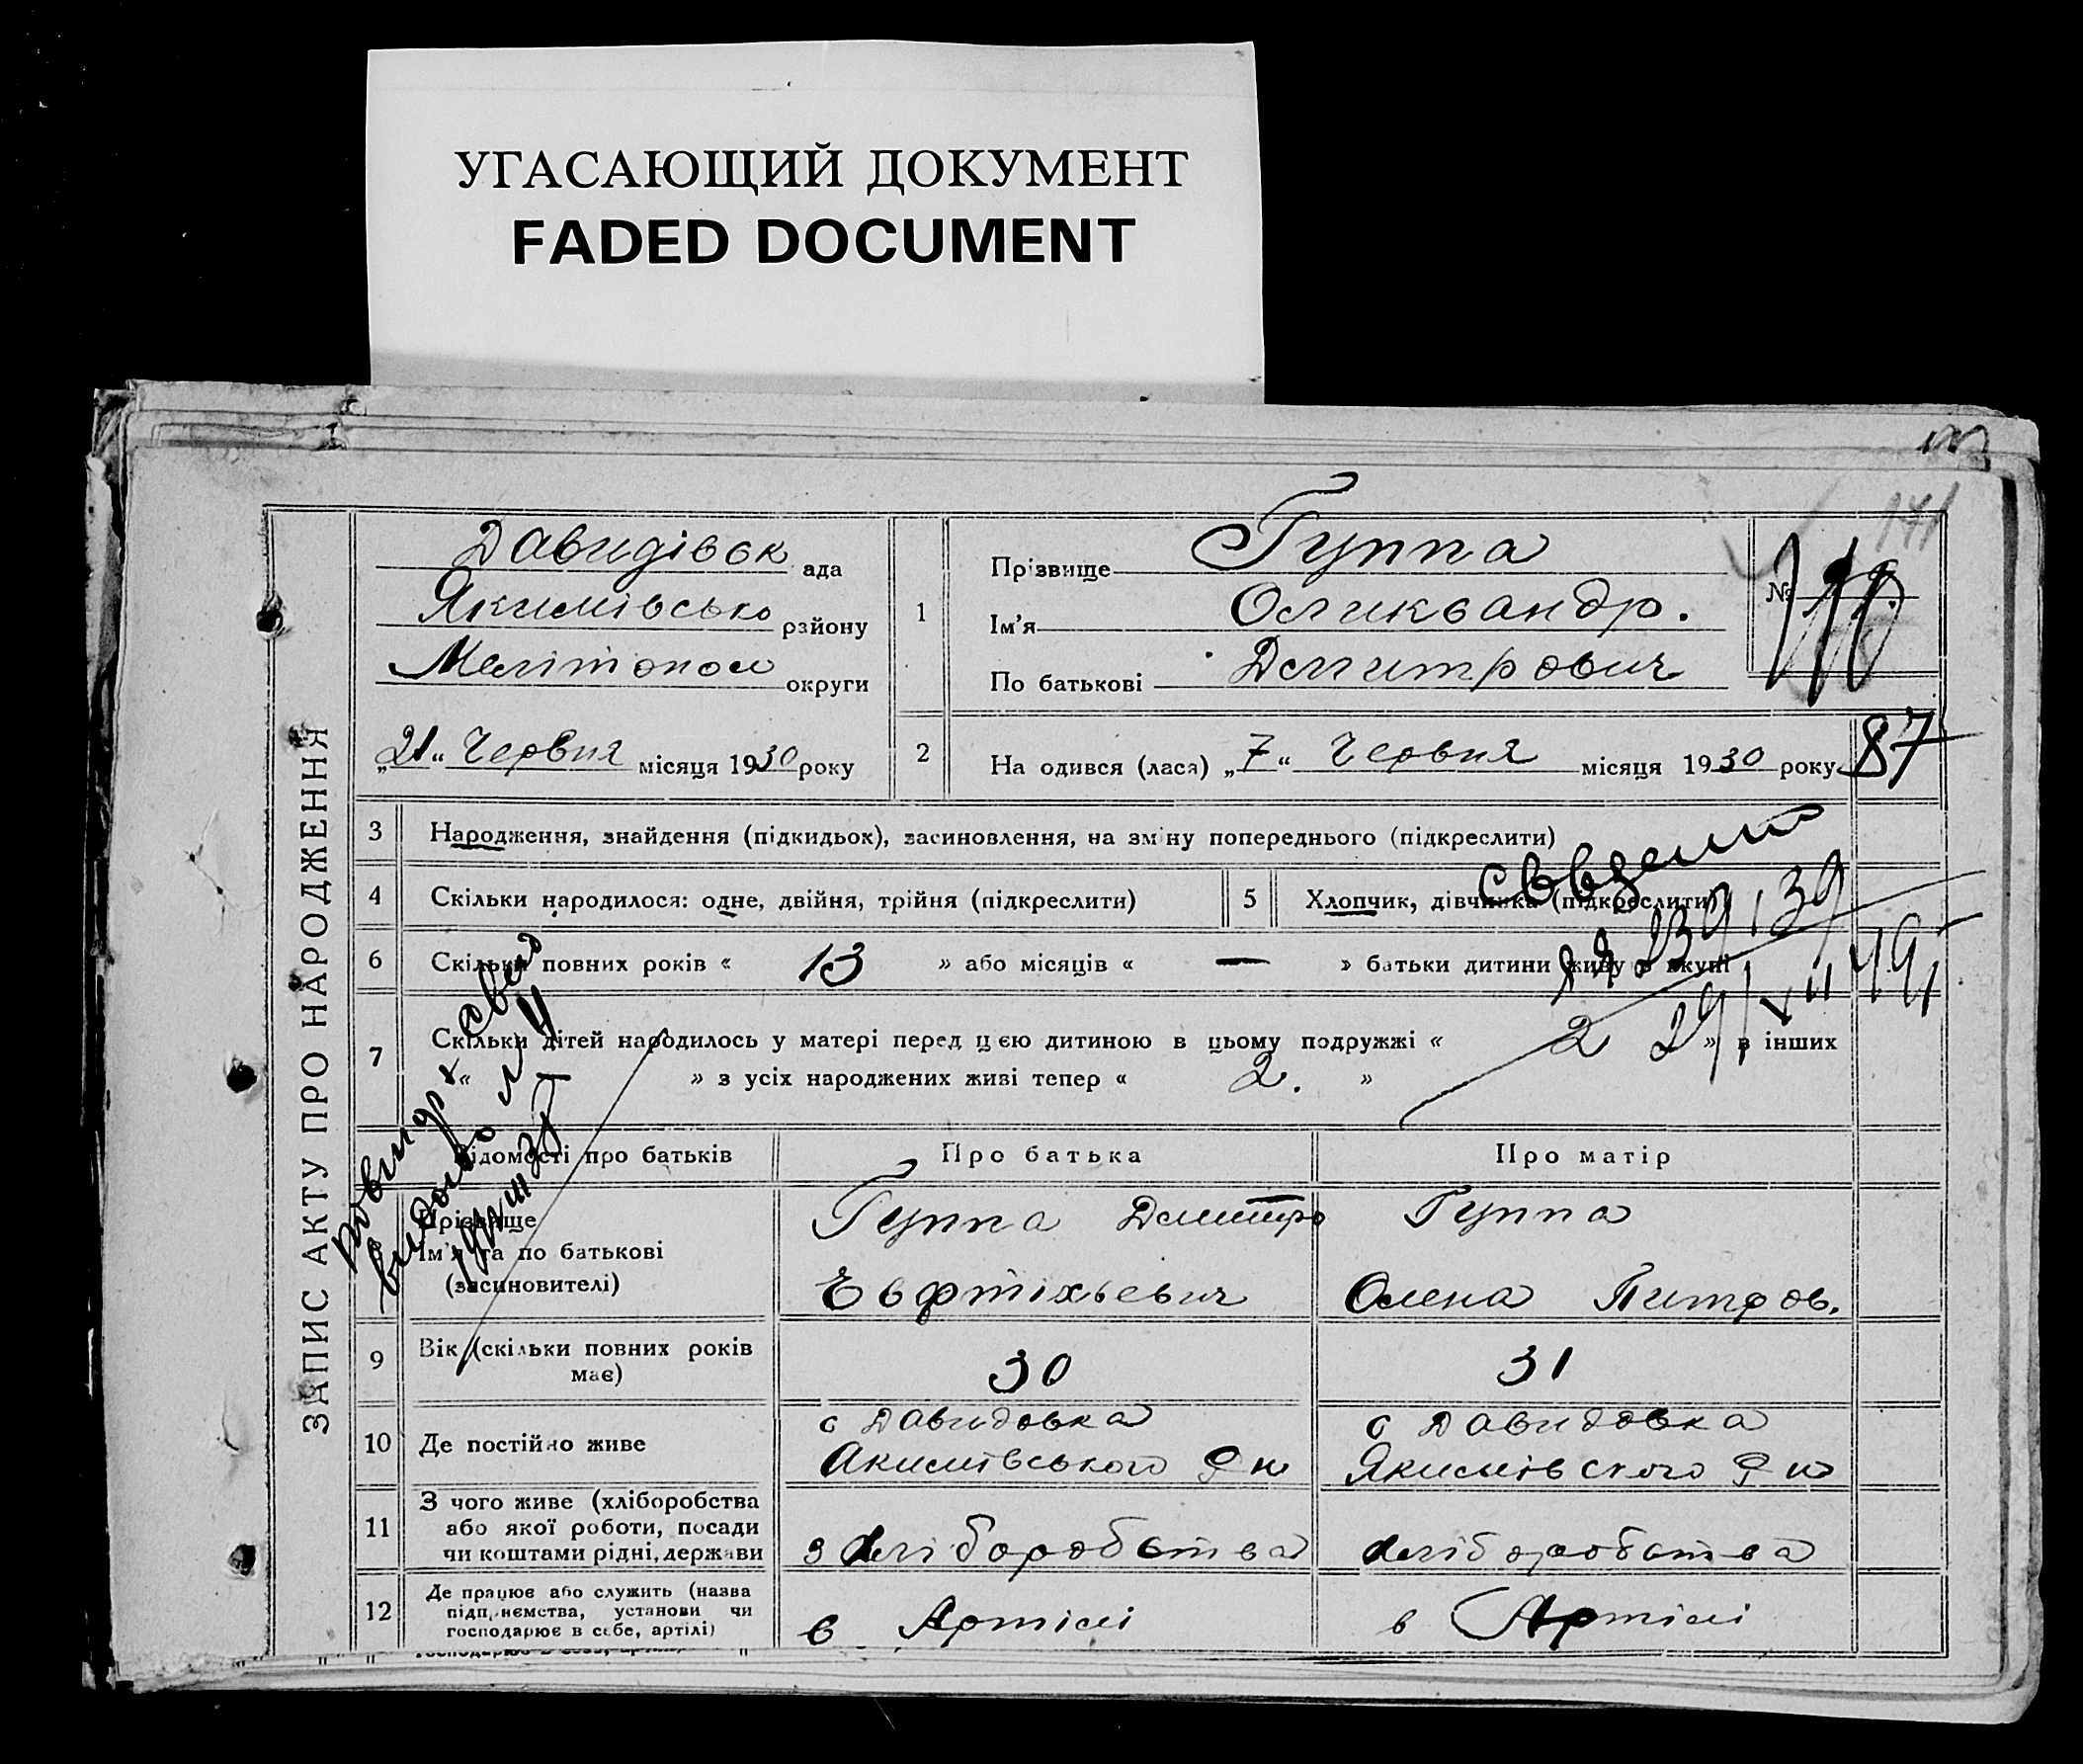 УГАСАЮЩИЙ ДОКУМЕНТ
FADED DOCUMENT
141
ЗАПИС АКТУ ПРО НАРОДЖЕННЯ
Давидівськ ада
Якимівсько району
Мелітопол округи
„21“ Червня місяця 1930 року
1
Прізвище Гуппа
Ім'я Оликсандр.
По батькові Дмитрович
№
2
На одився (лася) „7“ Червня місяця 1930 року
87
3 Народження, знайдення (підкидьок), засиновлення, на зміну попереднього (підкреслити)
4 Скільки народилося: одне, двійня, трійня (підкреслити)
5 Хлопчик, дівчинка (підкреслити)
6 Скільки повних років « 13 » або місяців « — » батьки дитини живу в вкупі
7 Скільки дітей народилось у матері перед цією дитиною в цьому подружжі « 2 » в інших
« » з усіх народжених живі тепер « 2. »
239139
29/VII 49
Повидр свид
видано
Відомості про батьків Про батька Про матір
Прізвище
Ім'я та по батькові
(засиновителі)
Гуппа Дмитро
Евфтіхьевич
Гуппа
Олена Питров.
9 Вік (скільки повних років
має)
30
31
10 Де постійно живе
с Давидовка
Акимівського Рн
с Давидовка
Якимівского Рн
11 З чого живе (хліборобства
або якої роботи, посади
чи коштами рідні, держави
з хліборобства
хліборобства
12 Де працює або служить (назва
підприємства, установи чи
господарює в себе, артілі)
в Артілі
в Артілі